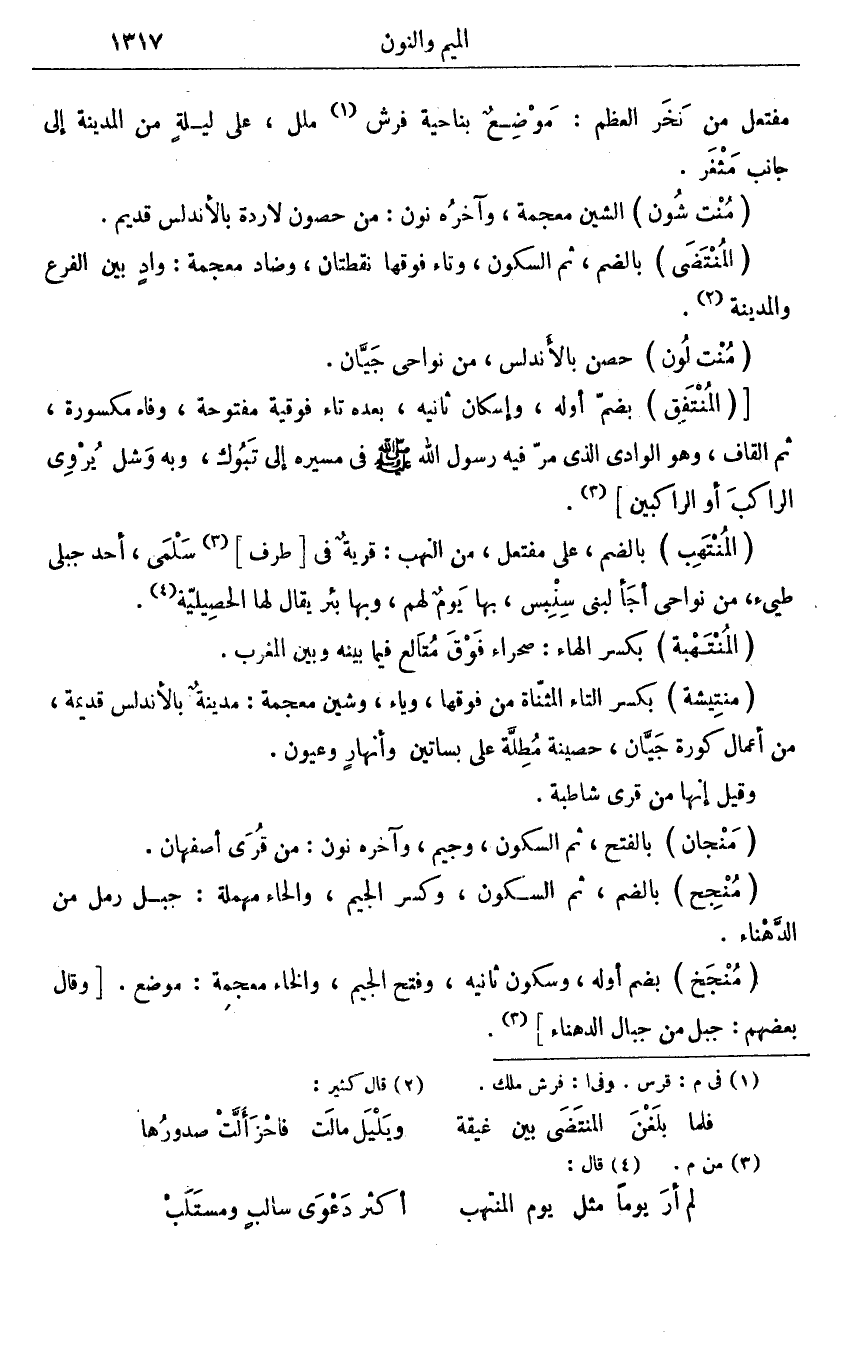 الميم والنون ١٣١٧
مفتعل من نَخَر العظم : مَوْضِعٌ بناحية فرش (١) ملل ، على ليلةٍ من المدينة إلى
جانب مَثْغَر .
( مُنْت شُون ) الشين معجمة ، وآخرُه نون : من حصون لاردة بالأندلس قديم .
( المُنْتَضَى ) بالضم ، ثم السكون ، وتاء فوقها نقطتان ، وضاد معجمة : وادٍ بين الفرع
والمدينة (٢) .
( مُنْت لُون ) حصن بالأندلس ، من نواحى جَيَّان .
[ ( المُنْتَفِق ) بضمّ أوله ، وإسكان ثانيه ، بعده تاء فوقية مفتوحة ، وفاء مكسورة ،
ثم القاف ، وهو الوادى الذى مرّ فيه رسول الله ﷺ فى مسيره إلى تَبُوك ، وبه وَشل يُرْوِى
الراكبَ أو الراكبين ] (٣) .
( المُنْتَهِب ) بالضم ، على مفتعل ، من النهب : قريةٌ فى [ طرف ] (٣) سَلْمَى ، أحد جبلى
طيىء، من نواحى أجَأ لبنى سِنْبِس ، بها يَومٌ لهم ، وبها بئر يقال لها الحصِيليّة (٤) .
( المُنْتَهْبة ) بكسر الهاء : صحراء فَوْقَ مُتَالع فيما بينه وبين المغرب .
( منتِيشة ) بكسر التاء المثنّاة من فوقها ، وياء ، وشين معجمة : مدينةٌ بالأندلس قديمة ،
من أعمال كورة جَيَّان ، حصينة مُطِلَّة على بساتين وأنهارٍ وعيون .
وقيل إنها من قرى شاطبة .
( مَنْجان ) بالفتح ، ثم السكون ، وجيم ، وآخره نون : من قُرَى أصفهان .
( مُنْجِح ) بالضم ، ثم السكون ، وكسر الجيم ، والحاء مهملة : جبل رمل من
الدَّهْناء .
( مُنْجَخ ) بضم أوله ، وسكون ثانيه ، وفتح الجيم ، والخاء معجمة : موضع . [ وقال
بعضهم : جبل من جبال الدهناء ] (٣) .
(١) فى م : قرس . وفى ا : فرش ملك . (٢) قال كثير :
فلما بلَغْنَ المنتَضَى بين غيقة ويَلْيَل مالَت فاحْزَألَّتْ صدورُها
(٣) من م . (٤) قال :
لم أرَ يوماً مثل يوم المنتهب أكثر دَعْوَى سالبٍ ومستَلَبْ